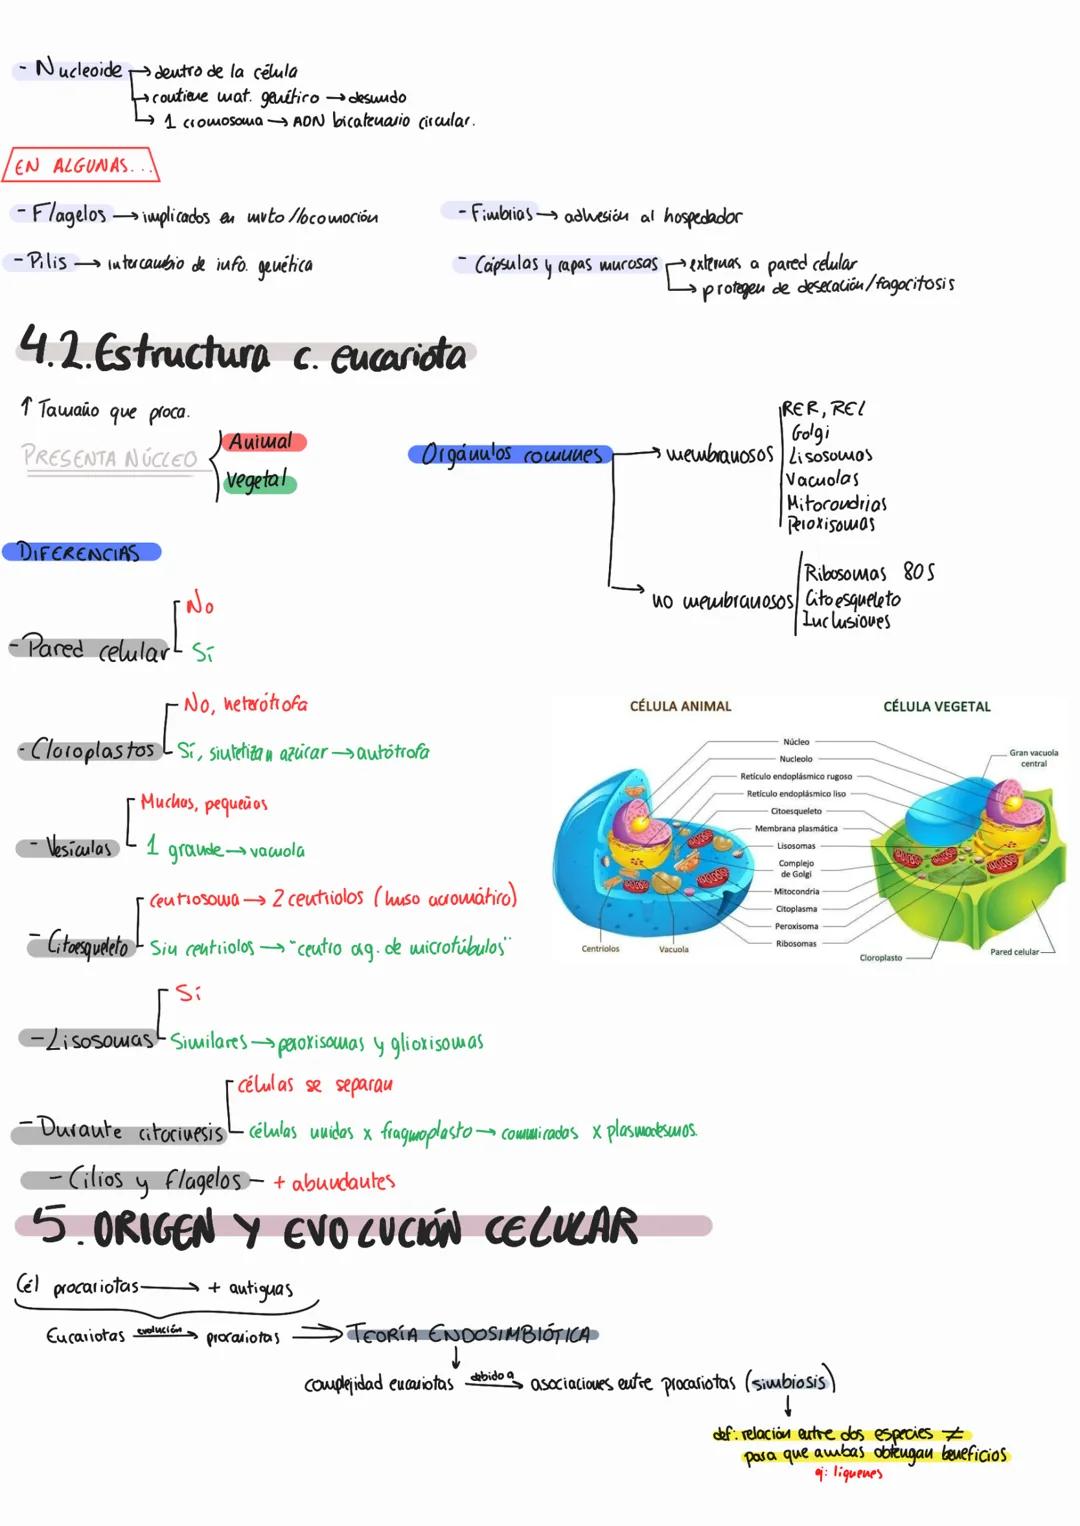 - Nucleoide → dentro de la célula
→ contiene mat. genético → desnudo
→ 1 cromosoma → ADN bicatenario circular.
EN ALGUNAS...
- Flagelos → implicados en mvto/locomoción
- Fimbrias → adhesión al hospedador
- Pilis → intercambio de info. genética
- Cápsulas y capas mucosas → externas a pared celular
→ protegen de desecación/fagocitosis
4.2. Estructura c. eucariota
↑ Tamaño que proca.
PRESENTA NÚCLEO
Animal
Vegetal
Orgánulos comunes
→ membranosos
RER, REL
Golgi
Lisosomas
Vacuolas
Mitocondrias
Peroxisomas
→ no membranosos
Ribosomas 80S
Citoesqueleto
Inclusiones
DIFERENCIAS
- Pared celular
No
Sí
- Cloroplastos
No, heterótrofa
Sí, sintetizan azúcar → autótrofa
- Vesículas
Muchas, pequeñas
1 grande → vacuola
- Citoesqueleto
centrosoma → 2 centriolos (huso acromático)
Sin centriolos → "centro org. de microtúbulos"
- Lisosomas
Sí
Similares → peroxisomas y glioxisomas
- Durante citocinesis
células se separan
células unidas x fragmoplasto → comunicadas x plasmodesmos.
- Cilios y flagelos - + abundantes
CÉLULA ANIMAL
CÉLULA VEGETAL
Núcleo
Nucleolo
Retículo endoplásmico rugoso
Retículo endoplásmico liso
Citoesqueleto
Membrana plasmática
Lisosomas
Complejo
de Golgi
Mitocondria
Citoplasma
Peroxisoma
Ribosomas
Gran vacuola
central
Centriolos
Vacuola
Cloroplasto
Pared celular
5. ORIGEN Y EVOLUCIÓN CELULAR
Cél procariotas → + antiguas
Eucariotas evolución → procariotas ⇒ TEORÍA ENDOSIMBIÓTICA
↓
complejidad eucariotas debido a → asociaciones entre procariotas (simbiosis)
↓
def: relación entre dos especies ≠
para que ambas obtengan beneficios
ej: líquenes